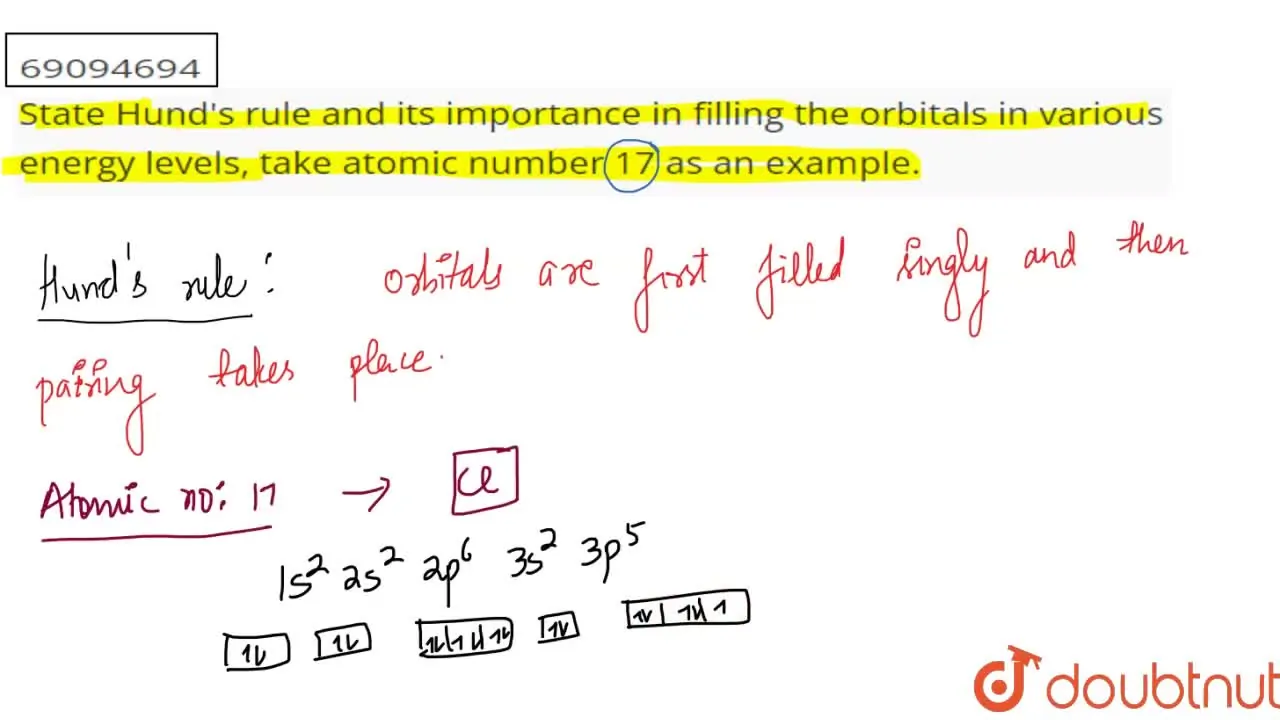 69094694
State Hund's rule and its importance in filling the orbitals in various
energy levels, take atomic number 17 as an example.
Hund's rule: orbitals are first filled singly and then
pairing takes place.
Atomic no: 17 → Cl
1s² 2s² 2p⁶ 3s² 3p⁵
1l 1l 1l 1l 1l 1l 1l 1l 1
doubtnut